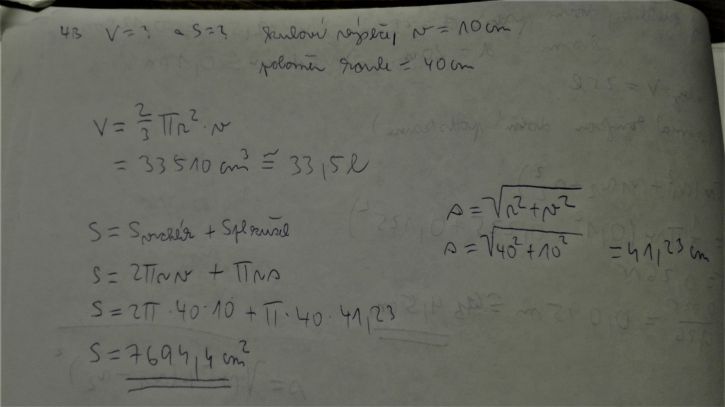 43 V = ? a S = ? kulová výseč, v = 10 cm
poloměr koule = 40 cm
V = 2/3 πr² · v
= 33510 cm³ ≅ 33,5 l
s = √r² + v²
s = √40² + 10² = 41,23 cm
S = Svrchlík + Spl kužel
S = 2πrv + πrs
S = 2π · 40 · 10 + π · 40 · 41,23
S = 7694,4 cm²